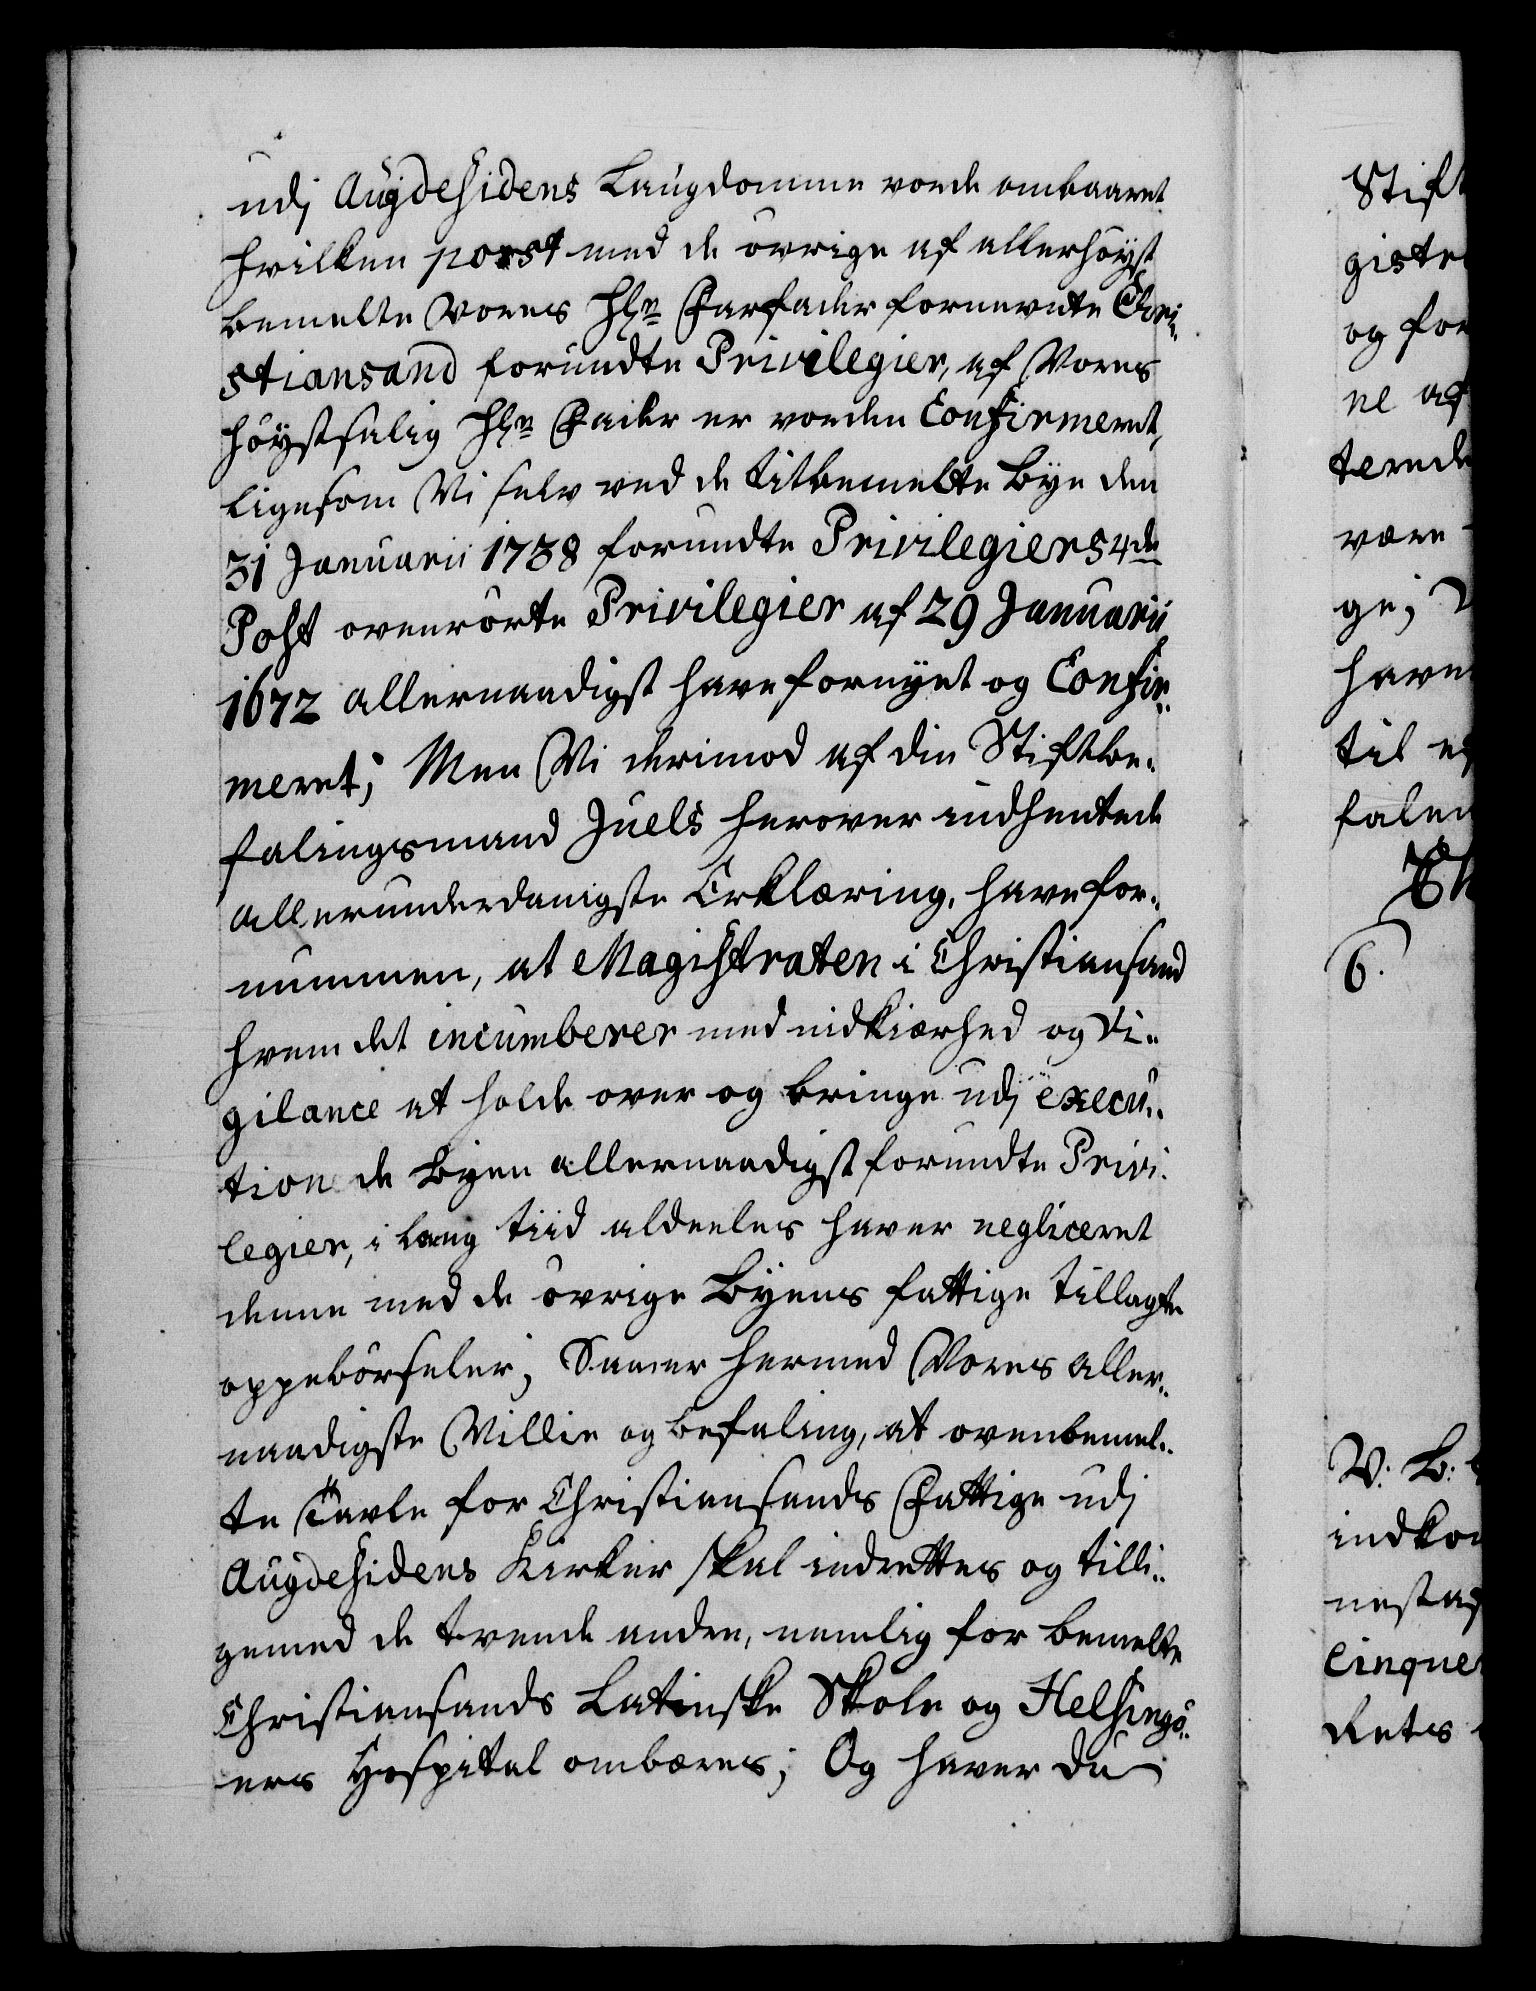 udj Augdesidens Laugdomme vorde ombaaret
hvilken porst med de övrige af allerhöyst
bemelte Vores Hr. Farfader fornevnte Chri-
stiansand forundte Privilegier, af Vores
höystsalig Hr. Fader er vorden Confirmeret,
ligesom Vi selv ved de titbemelte Bye den
31 Januarii 1738 forundte Privilegiers 4de
Post ovenrörte Privilegier af 29 Januarii
1672 allernaadigst have fornyet og Confir-
meret; Men Vi derimod af din Stiftbe-
falingsmand Juels herover indhentede
allerunderdanigste Erklæring, have for-
nummen, at Magistraten i Christiansand
hvem det incumberer med nidkiærhed og Vi-
gilance at holde over og bringe udj execu-
tion de Byen allernaadigst forundte Privi-
legier, i lang tiid aldeeles haver negliceret
denne med de övrige Byens fattige tillagte
oppebörseler; Saa er hermed Vores aller-
naadigste Villie og befaling, at ovenbemel-
te Tavle for Christiansands Fattige udj
Augdesidens Kirker skal indrettes og tilli-
gemed de tvende andre, nemlig for bemelte
Christiansands Latinske Skole og Helsingö-
ers Hospital ombæres; Og haver du
Stift
giste
og for
ne af
terede
være
ge;
have
til
falen
6.
V. B:
indko
nestaf
Cinque
Rets